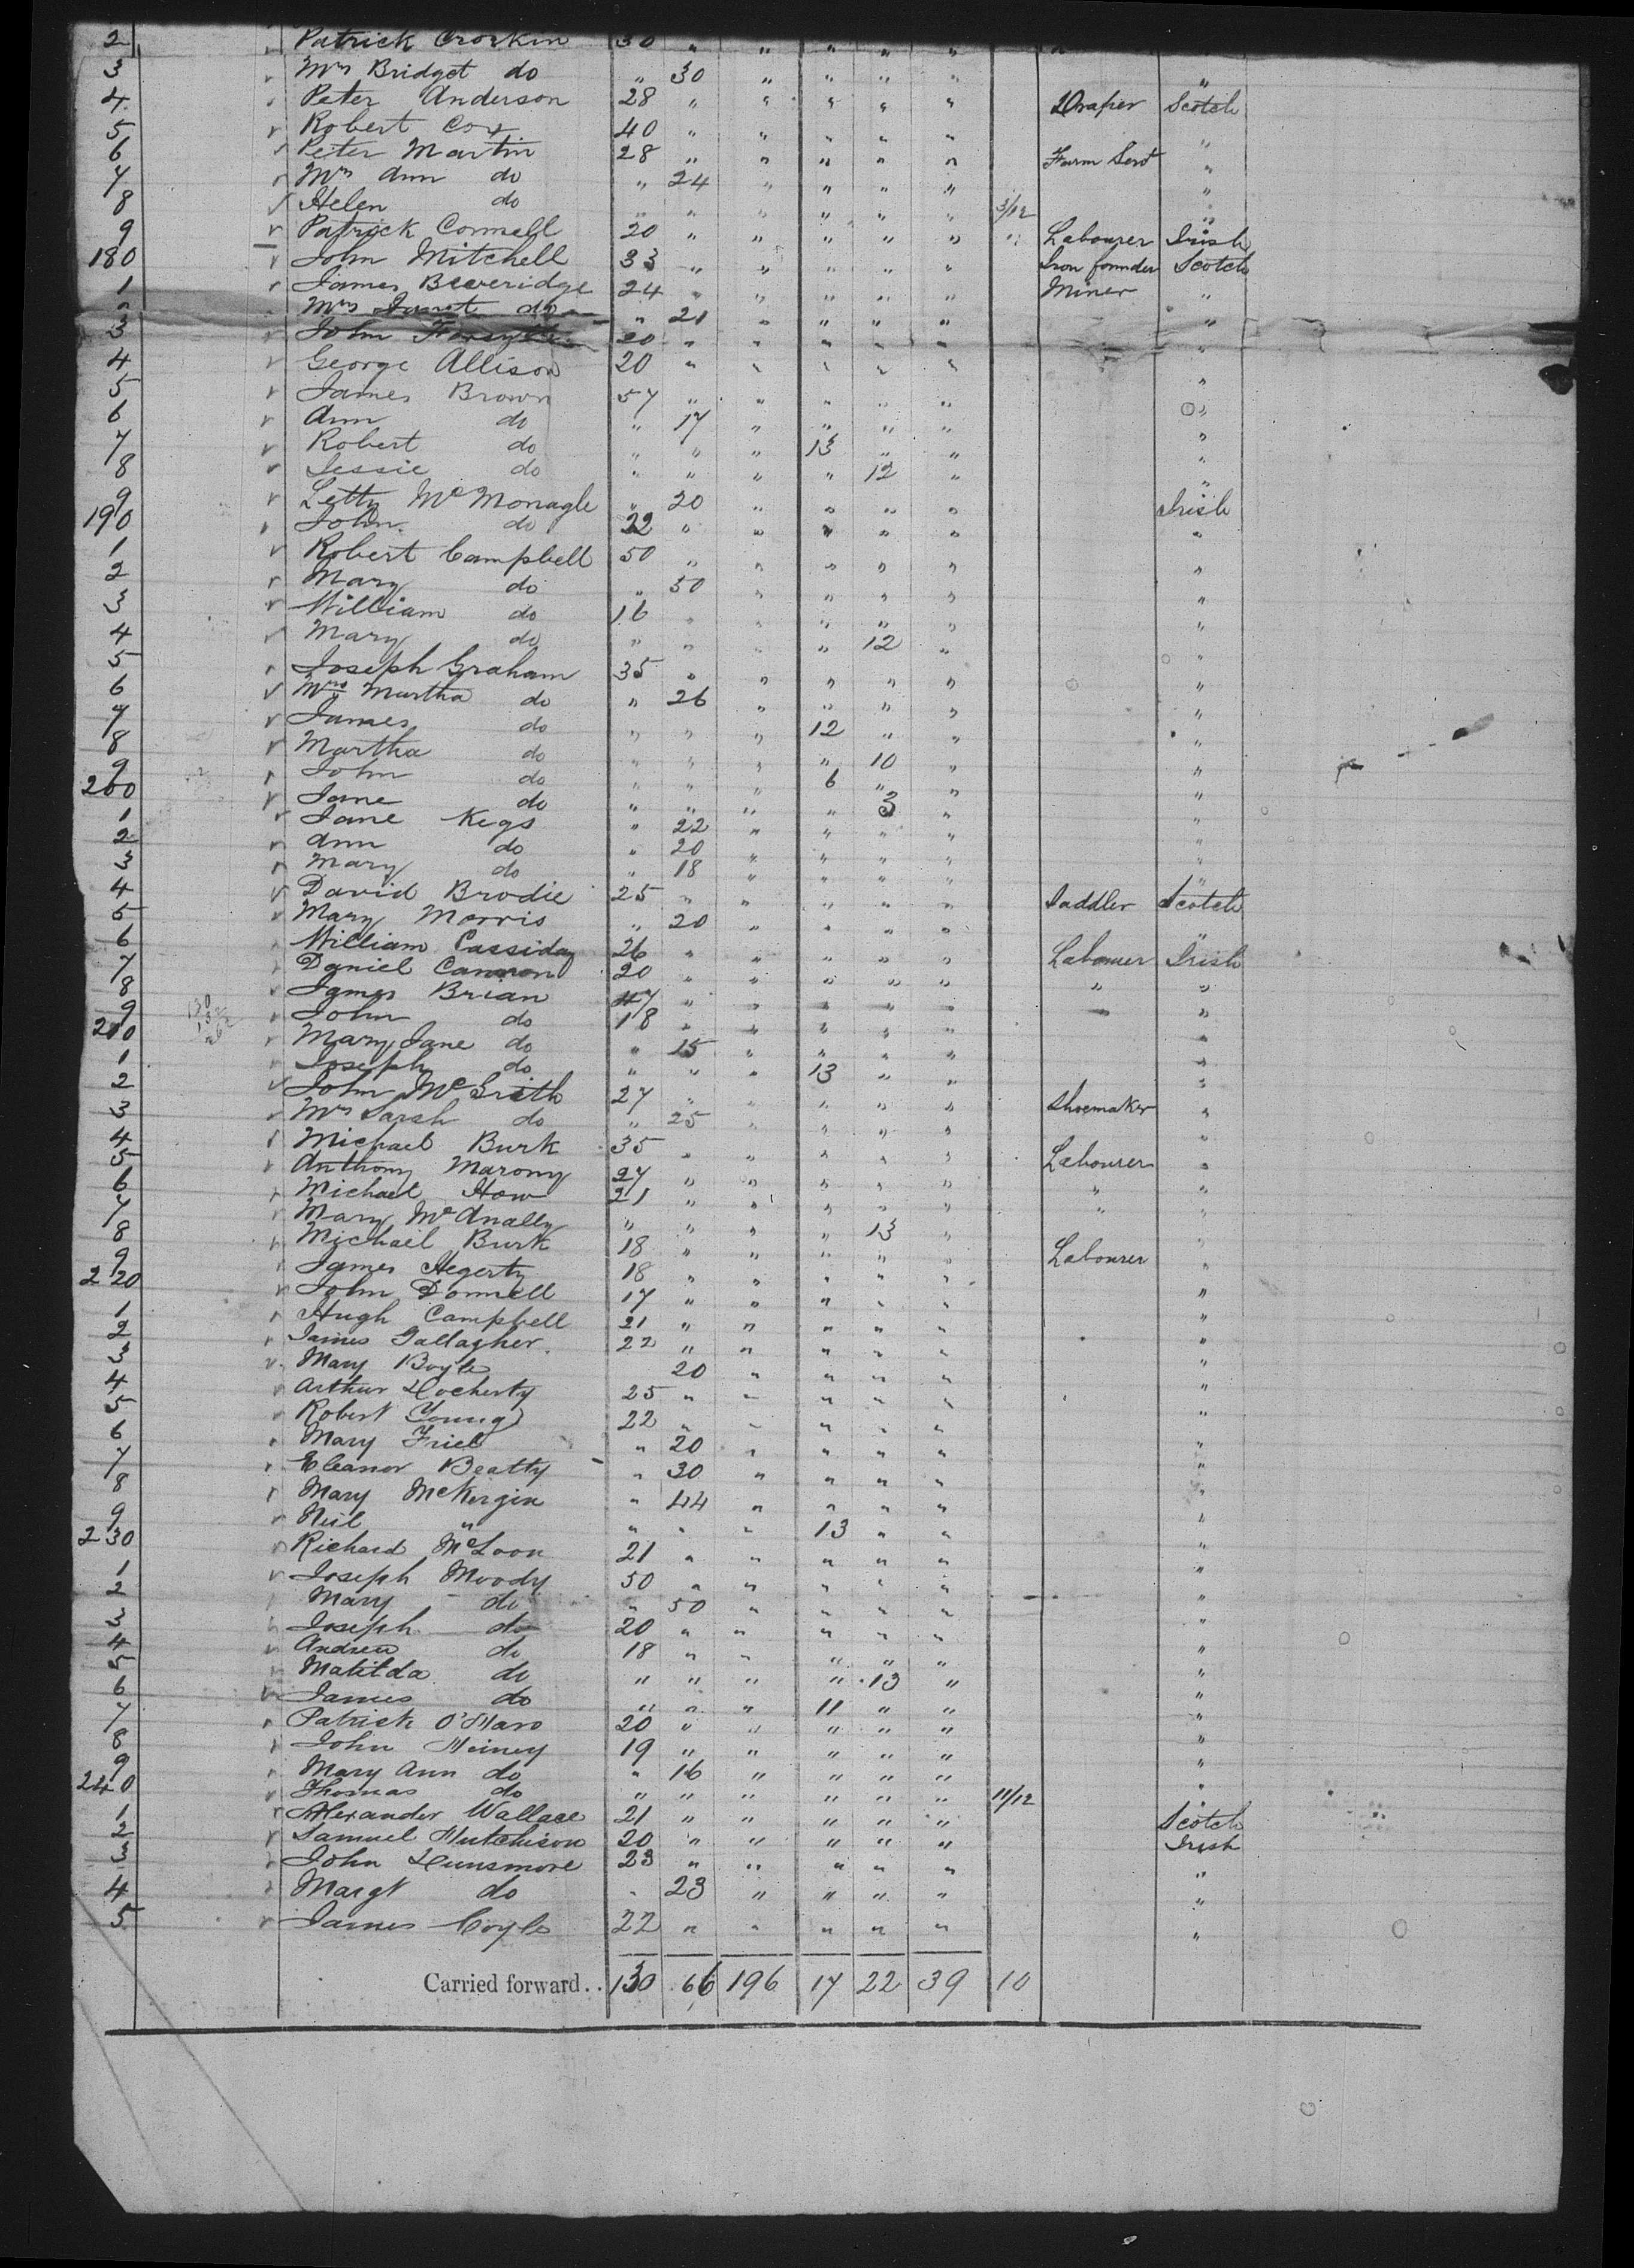 2 Patrick Crorkin 30 " " " " "
3 Mrs Bridget do " 30 " " " " "
4 Peter Anderson 28 " " " " " Draper Scotch
5 Robert Cox 40 " " " " " "
6 Peter Martin 28 " " " " " Farm Servt "
7 Mrs Ann do " 24 " " " " "
8 Helen do " " " " " " 3/12 "
9 Patrick Connell 20 " " " " " " Labourer Irish
180 John Mitchell 33 " " " " " Iron founder Scotch
1 James Beveridge 24 " " " " " Miner "
2 Mrs Janet do " 21 " " " " "
3 John Forsyth 20 " " " " " "
4 George Allison 20 " " " " " "
5 James Brown 57 " " " " " "
6 Ann do " 17 " " " " "
7 Robert do " " " 13 " " "
8 Jessie do " " " " 12 " "
9 Letty McMonagle " 20 " " " " Irish
190 John do 22 " " " " " "
1 Robert Campbell 50 " " " " " "
2 Mary do " 50 " " " " "
3 William do 16 " " " " " "
4 Mary do " " " " 12 " "
5 Joseph Graham 35 " " " " " "
6 Mrs Martha do " 26 " " " " "
7 James do " " " 12 " " "
8 Martha do " " " " 10 " "
9 John do " " " 6 " " "
200 Jane do " " " " 3 " "
1 Jane Kegs " 22 " " " " "
2 Ann do " 20 " " " " "
3 Mary do " 18 " " " " "
4 David Brodie 25 " " " " " Saddler Scotch
5 Mary Morris " 20 " " " " "
6 William Cassiday 26 " " " " " Labourer Irish
7 Daniel Cannon 20 " " " " " " "
8 James Brian 47 " " " " " " "
9 John do 18 " " " " " "
210 Mary Jane do " 15 " " " " "
1 Joseph do " " " 13 " " "
2 John McGrath 27 " " " " " Shoemaker "
3 Mrs Sarah do " 25 " " " " "
4 Michael Burk 35 " " " " " Labourer "
5 Anthony Marony 27 " " " " " " "
6 Michael How 21 " " " " " " "
7 Mary McAnally " " " " 13 " "
8 Michael Burk 18 " " " " " Labourer "
9 James Hegerty 18 " " " " " "
220 John Donnell 17 " " " " " "
1 Hugh Campbell 21 " " " " " "
2 James Gallagher 22 " " " " " "
3 Mary Boyle 20 " " " " "
4 Arthur Docherty 25 " " " " " "
5 Robert Young 22 " " " " " "
6 Mary Friel " 20 " " " " "
7 Eleanor Beatty " 30 " " " " "
8 Mary McKergin " 44 " " " " "
9 Neil " " " " 13 " " "
230 Richard McLoon 21 " " " " " "
1 Joseph Moody 50 " " " " " "
2 Mary do " 50 " " " " "
3 Joseph do 20 " " " " " "
4 Andrew do 18 " " " " " "
5 Matilda do " " " " 13 " "
6 James do " " " 11 " " "
7 Patrick O'Haro 20 " " " " " "
8 John Heiney 19 " " " " " "
9 Mary Ann do " 16 " " " " "
240 Thomas do " " " " " " 11/12 "
1 Alexander Wallace 21 " " " " " Scotch
2 Samuel Hutchison 20 " " " " " Irish
3 John Dunsmore 23 " " " " " "
4 Margt do " 23 " " " " "
5 James Coyle 22 " " " " " "
Carried forward.. 130 66 196 17 22 39 10